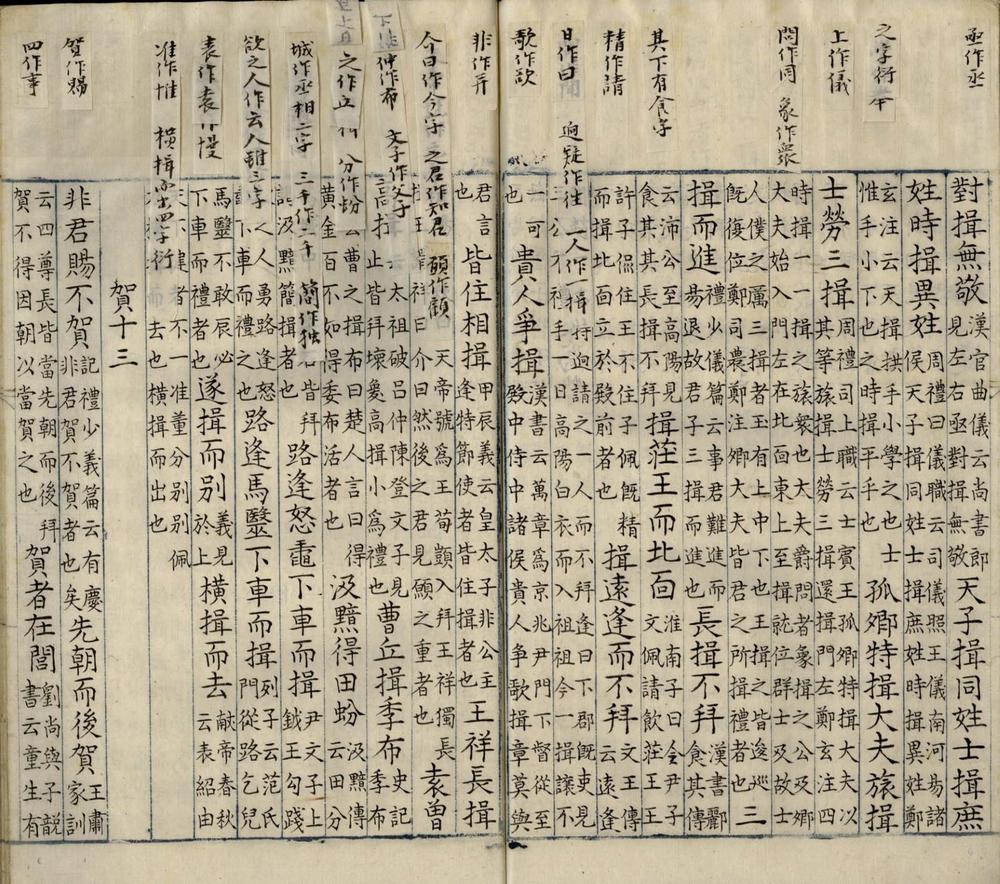 亟作丞
之字衍本
上作儀
問作同 象作衆
其下有食字
精作請
日作曰 逈疑作往 一人作一揖
歌作欤
對揖無敬
漢官曲儀云尚書郎
見左右亟對揖無敬
天子揖同姓士揖庶
姓時揖異姓
周禮曰儀職云司儀照王儀南河易諸
侯天子揖同姓士揖庶姓時揖異姓鄭
玄注云天揖拱手小學之也士
惟手小下也之時揖平平手也
孤卿特揖大夫旅揖
士勞三揖
周禮司上職云士賓王孤卿特揖大夫以
其等旅揖士勞三揖還揖門左鄭玄注四
時揖一一揖之旅衆也大夫爵問者象揖之公及卿
大夫始入門左在北面東上至揖就位群士及故士
人僕之厲三揖者玉有上中下也王揖之皆逡巡
既復位鄭司農鄭注卿大夫皆君之所揖禮者也
三
揖而進
禮少儀篇云事君難進而
易退故君子三揖而進也
長揖不拜
漢書酈
食其傳
云沛公至高陽見
食其其長揖不拜
揖莊王而北面
淮南子曰令尹子
文佩請飲莊王王
許子侃住王不住子佩既
而揖北面立於殿前者也
精
揖遠逢而不拜
文王傳
云遠逢
逈請之一人而不拜逢曰下郡既吏見
揖手一日高陽白衣而入祖今一揖讓不
一可
也
貴人爭揖
漢書云萬章爲京兆尹門下督從至
殿中侍中諸侯貴人争歌揖章莫與
非作并
今曰作今字 之君作知君 顧作顧
仲作布 文子作父字
之作立 分作蚡
城作丞相二字 三千作二千 簡作獨
欲之人作云人鉗三字
表作袁 作慢
准作惟 橫揖亦出四字衍
賀作賜
四作事
君言
也
皆住相揖
甲辰義云皇太子非公主
逢特節使者皆住揖者也
王祥長揖
天帝號爲王荀顗入拜王祥獨長
祥曰介曰然後之君見顧之重者也
袁曽
太祖破吕仲陳登文子見
止皆拜壞夐高揖小爲禮也
曹丘揖季布
史記
季布
云曹之揖布曰楚人言曰得
黄金百不如得委布活者也
汲黯得田蚡
汲黯傳
云田分
皆拜
汲黯簡揖者也
路逢怒鼃下車而揖
尹文子上
鉞王勾踐
人勇路逢怒
下車而禮之也
路逢馬毉下車而揖
列子云范氏
門從路乞兒
馬毉不敢辰必
下車而禮者也
遂揖而别
義見
於上
橫揖而去
献帝春秋
云表紹由
者不一准董分别别佩
去也橫揖而出也
賀十三
非君賜不賀
記禮少義篇云有慶
非君賀不賀者也矣
先朝而後賀
王肅
家訓
云四尊長皆當先朝而後拜
賀不得因朝以當賀之也
賀者在閭
劉尚與子歆
書云董生有